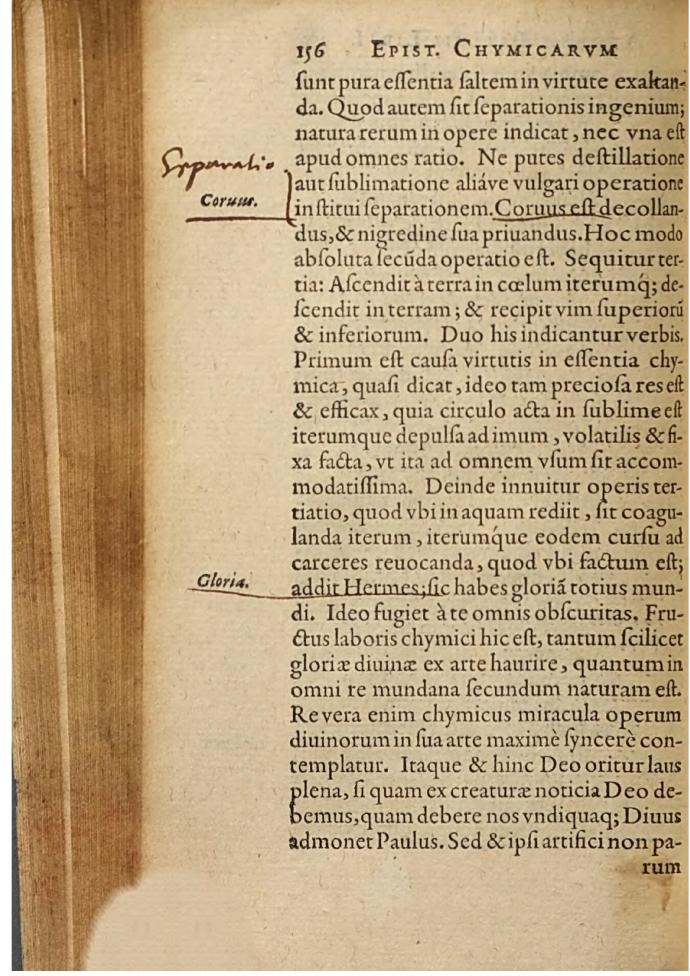 156 EPIST. CHYMICARVM
ſunt pura eſſentia ſaltem in virtute exaltan-
da. Quod autem ſit ſeparationis ingenium;
natura rerum in opere indicat, nec vna eſt
apud omnes ratio. Ne putes deſtillatione
Separatio
aut ſublimatione aliáve vulgari operatione
Coruus.
inſtitui ſeparationem. Coruus eſt decollan-
dus, & nigredine ſua priuandus. Hoc modo
abſoluta ſecūda operatio eſt. Sequitur ter-
tia: Aſcendit à terra in cœlum iterumq́; de-
ſcendit in terram; & recipit vim ſuperiorū
& inferiorum. Duo his indicantur verbis.
Primum eſt cauſa virtutis in eſſentia chy-
mica, quaſi dicat, ideo tam precioſa res eſt
& efficax, quia circulo acta in ſublime eſt
iterumque depulſa ad imum, volatilis & fi-
xa facta, vt ita ad omnem vſum ſit accom-
modatiſſima. Deinde innuitur operis ter-
tiatio, quod vbi in aquam rediit, ſit coagu-
landa iterum, iterumq́ue eodem curſu ad
carceres reuocanda, quod vbi factum eſt;
Gloria.
addit Hermes; ſic habes gloriā totius mun-
di. Ideo fugiet à te omnis obſcuritas. Fru-
ctus laboris chymici hic eſt, tantum ſcilicet
gloriæ diuinæ ex arte haurire, quantum in
omni re mundana ſecundum naturam eſt.
Revera enim chymicus miracula operum
diuinorum in ſua arte maximè ſyncerè con-
templatur. Itaque & hinc Deo oritur laus
plena, ſi quam ex creaturæ noticia Deo de-
bemus, quam debere nos vndiquaq; Diuus
admonet Paulus. Sed & ipſi artifici non pa-
rum